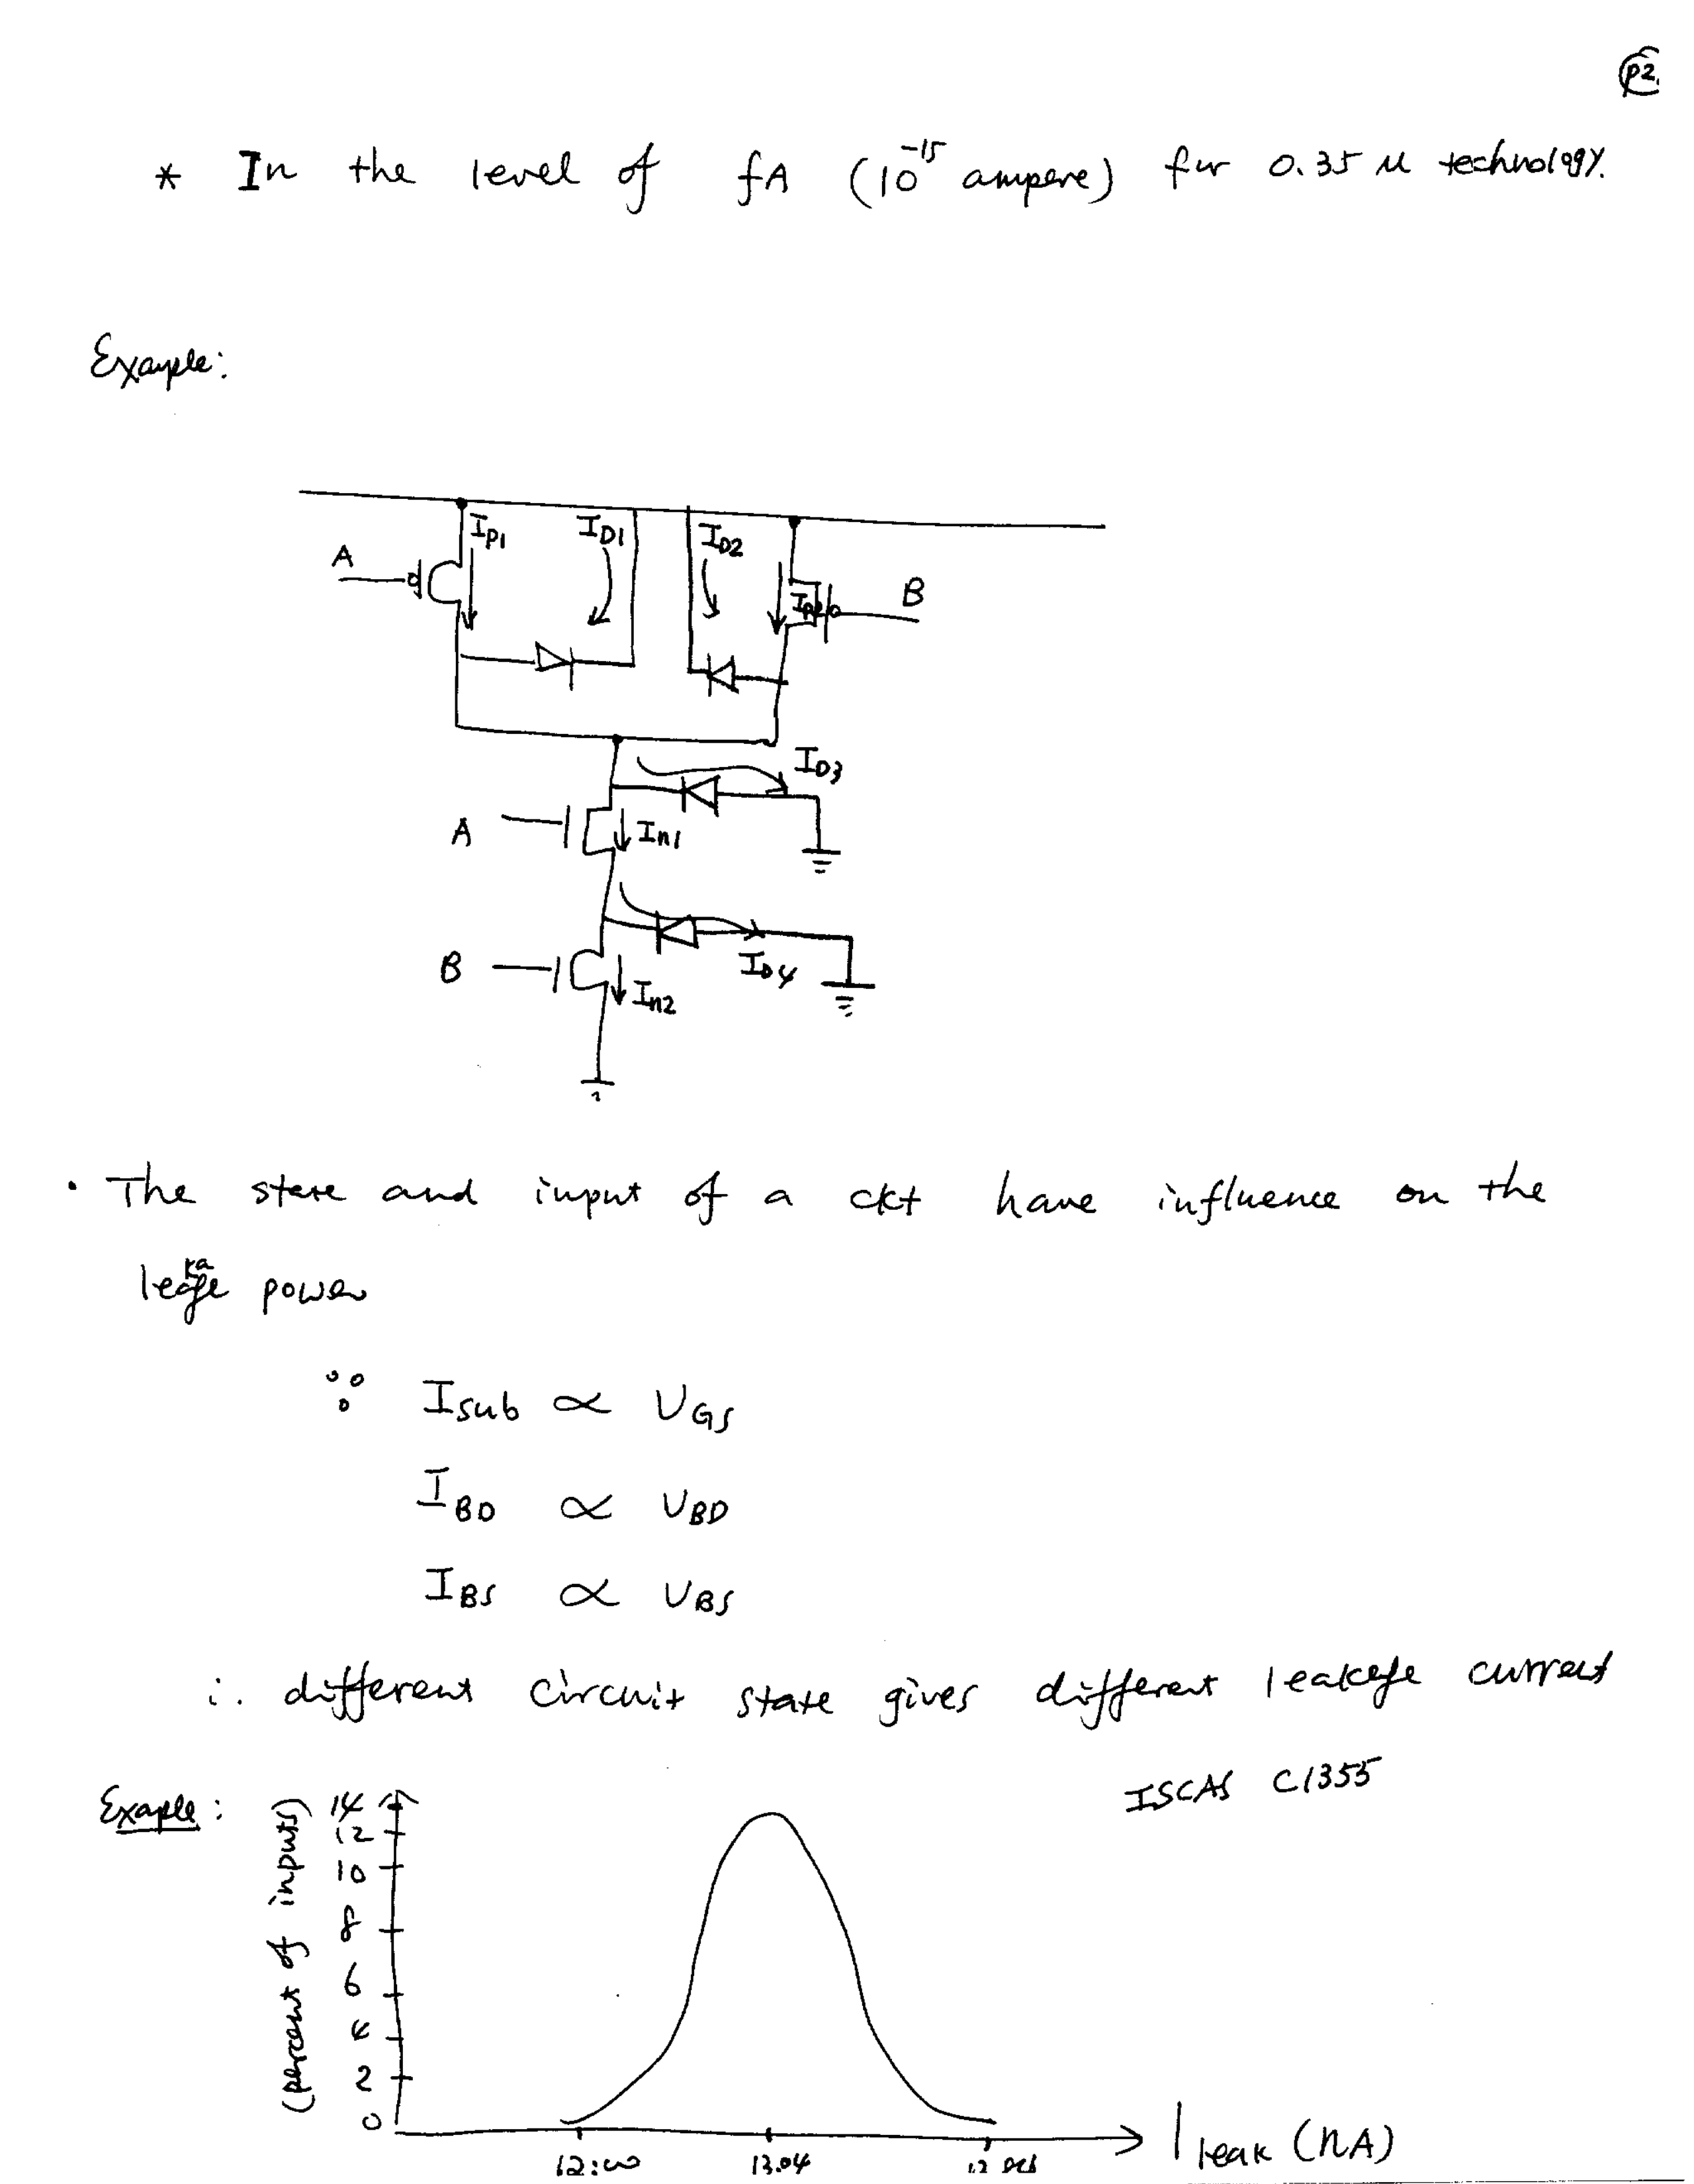 P2.
* In the level of fA (10^-15 ampere) for 0.35 µ technology.
Example:
I_P1 I_D1 I_D2
A B
I_D3
A I_n1
B I_D4
I_n2
• The state and input of a ckt have influence on the
leakage power
∵ I_sub ∝ V_GS
I_BD ∝ V_BD
I_BS ∝ V_BS
∴ different circuit state gives different leakage current
ISCAS C1355
Example:
(percent of inputs)
14
12
10
8
6
4
2
0
13.04
I_leak (nA)